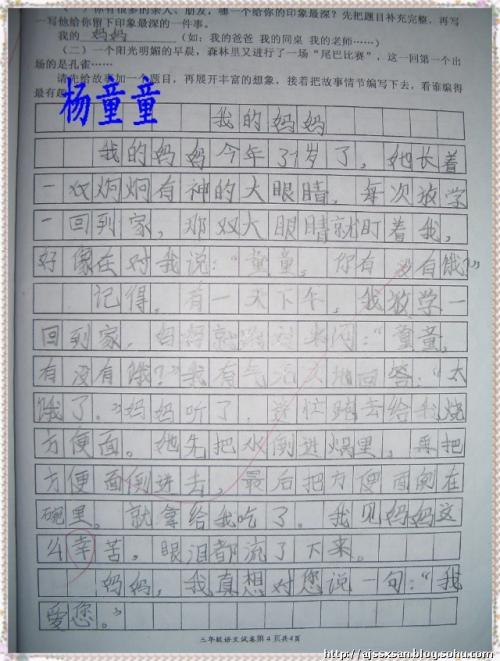 （一）你有很多的亲人、朋友，哪一个给你的印象最深？先把题目补充完整，再写
一写他给你留下印象最深的一件事。
我的 妈妈 （如：我的爸爸 我的同桌 我的老师……）
（二）一个阳光明媚的早晨，森林里又进行了一场“尾巴比赛”，这一回第一个出
场的是孔雀……
请先给故事加一个题目，再展开丰富的想象，接着把故事情节编写下去，看谁编得
最有趣
杨童童
我的妈妈
我的妈妈今年31岁了，她长着
一双炯炯有神的大眼睛，每次放学
一回到家，那双大眼睛就盯着我，
好像在对我说：“童童，你有没有饿？”
记得，有一天下午，我放学一
回到家，妈妈就跑过来问：“童童，
有没有饿？”我有气沼无地回答：“太
饿了。”妈妈听了，连忙跑去给我烧
方便面。她先把水倒进锅里，再把
方便面倒进去，最后把方便面倒在
碗里。就拿给我吃了。我见妈妈这
么幸苦，眼泪都流了下来。
妈妈，我真想对您说一句：“我
爱您。”
三年级语文试卷第4页共4页
http://ajssxsan.blog.sohu.com